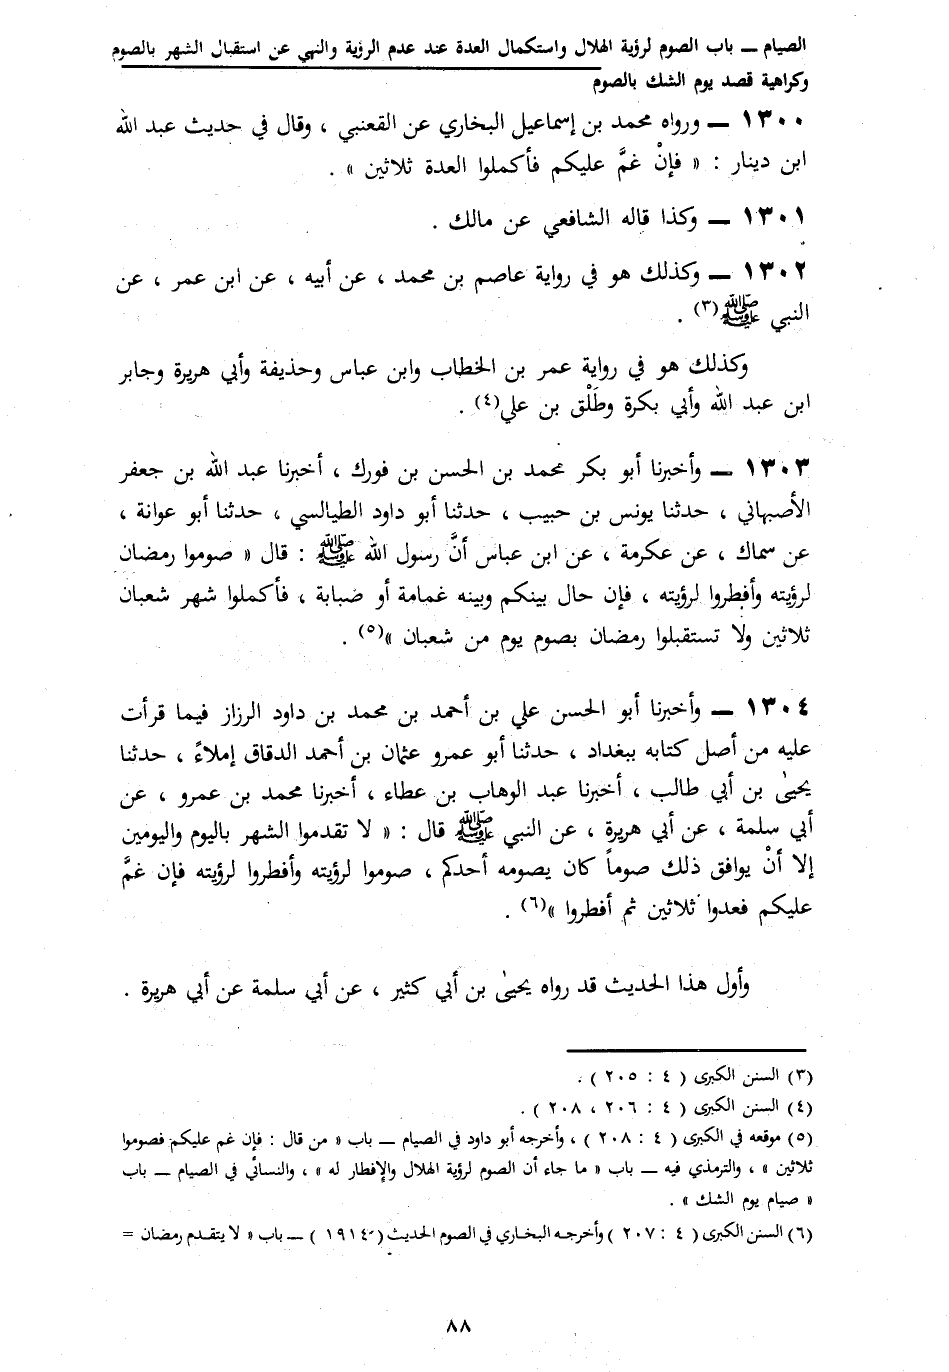 الصيام ــ باب الصوم لرؤية الهلال واستكمال العدة عند عدم الرؤية والنهي عن استقبال الشهر بالصوم
وكراهية قصد يوم الشك بالصوم
١٣٠٠ ــ ورواه محمد بن إسماعيل البخاري عن القعنبي ، وقال في حديث عبد الله
ابن دينار : « فإنْ غمَّ عليكم فأكملوا العدة ثلاثين » .
١٣٠١ ــ وكذا قاله الشافعي عن مالك .
١٣٠٢ ــ وكذلك هو في رواية عاصم بن محمد ، عن أبيه ، عن ابن عمر ، عن
النبي ﷺ(٣) .
وكذلك هو في رواية عمر بن الخطاب وابن عباس وحذيفة وأبي هريرة وجابر
ابن عبد الله وأبي بكرة وطَلْق بن علي(٤) .
١٣٠٣ ــ وأخبرنا أبو بكر محمد بن الحسن بن فورك ، أخبرنا عبد الله بن جعفر
الأصبهاني ، حدثنا يونس بن حبيب ، حدثنا أبو داود الطيالسي ، حدثنا أبو عوانة ،
عن سماك ، عن عكرمة ، عن ابن عباس أنَّ رسول الله ﷺ : قال « صوموا رمضان
لرؤيته وأفطروا لرؤيته ، فإن حال بينكم وبينه غمامة أو ضبابة ، فأكملوا شهر شعبان
ثلاثين ولا تستقبلوا رمضان بصوم يوم من شعبان »(٥) .
١٣٠٤ ــ وأخبرنا أبو الحسن علي بن أحمد بن محمد بن داود الرزاز فيما قرأت
عليه من أصل كتابه ببغداد ، حدثنا أبو عمرو عثمان بن أحمد الدقاق إملاءً ، حدثنا
يحيىٰ بن أبي طالب ، أخبرنا عبد الوهاب بن عطاء ، أخبرنا محمد بن عمرو ، عن
أبي سلمة ، عن أبي هريرة ، عن النبي ﷺ قال : « لا تقدموا الشهر باليوم واليومين
إلا أنْ يوافق ذلك صوماً كان يصومه أحدكم ، صوموا لرؤيته وأفطروا لرؤيته فإن غمَّ
عليكم فعدوا ثلاثين ثم أفطروا »(٦) .
وأول هذا الحديث قد رواه يحيىٰ بن أبي كثير ، عن أبي سلمة عن أبي هريرة .
(٣) السنن الكبرى ( ٤ : ٢٠٥ ) .
(٤) السنن الكبرى ( ٤ : ٢٠٦ ، ٢٠٨ ) .
(٥) موقعه في الكبرى ( ٤ : ٢٠٨ ) ، وأخرجه أبو داود في الصيام ــ باب « من قال : فإن غم عليكم فصوموا
ثلاثين » ، والترمذي فيه ــ باب « ما جاء أن الصوم لرؤية الهلال والإفطار له » ، والنسائي في الصيام ــ باب
« صيام يوم الشك » .
(٦) السنن الكبرى ( ٤ : ٢٠٧ ) وأخرجه البخاري في الصوم الحديث ( ١٩١٤ ) ــ باب « لا يتقدم رمضان =
٨٨